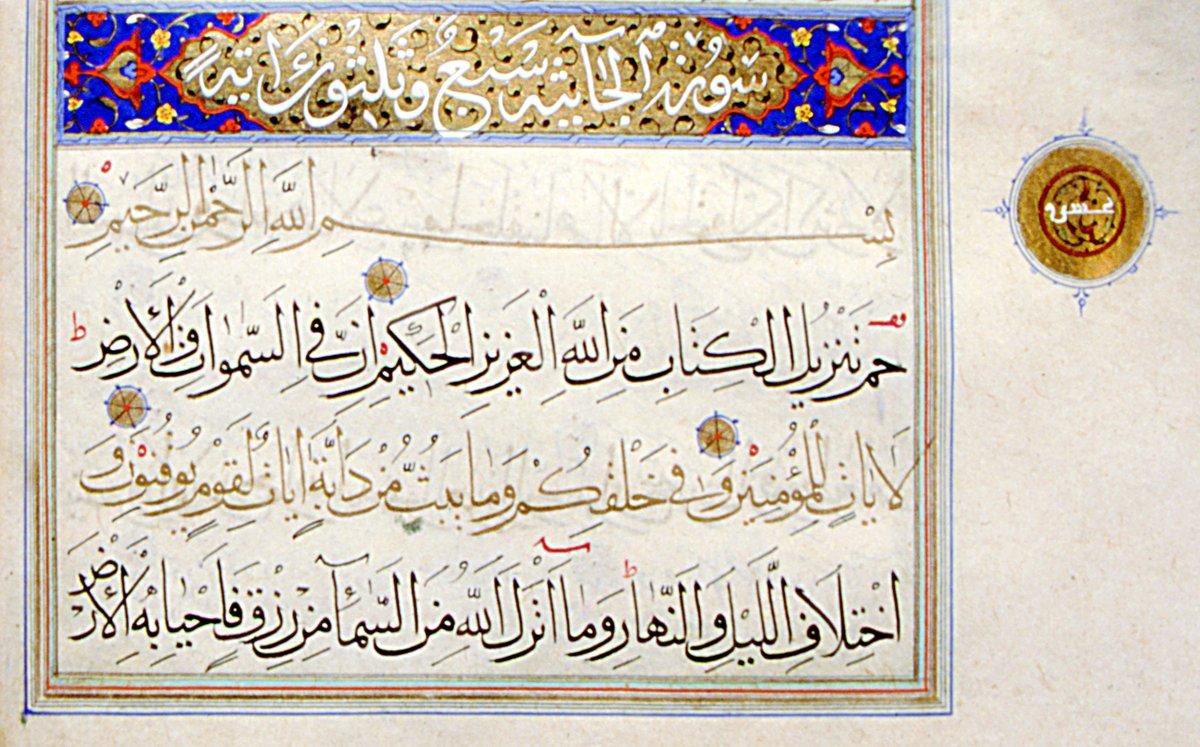 سورة الجاثية سبع وثلثون آية
بِسْمِ اللَّهِ الرَّحْمٰنِ الرَّحِيمِ
حم تَنزِيلُ الْكِتَابِ مِنَ اللَّهِ الْعَزِيزِ الْحَكِيمِ إِنَّ فِي السَّمٰوَاتِ وَالْأَرْضِ
لَآيَاتٍ لِلْمُؤْمِنِينَ وَفِي خَلْقِكُمْ وَمَا يَبُثُّ مِنْ دَابَّةٍ آيَاتٌ لِقَوْمٍ يُوقِنُونَ وَ
اخْتِلَافِ اللَّيْلِ وَالنَّهَارِ وَمَا أَنْزَلَ اللَّهُ مِنَ السَّمَآءِ مِنْ رِزْقٍ فَأَحْيَا بِهِ الْأَرْضَ